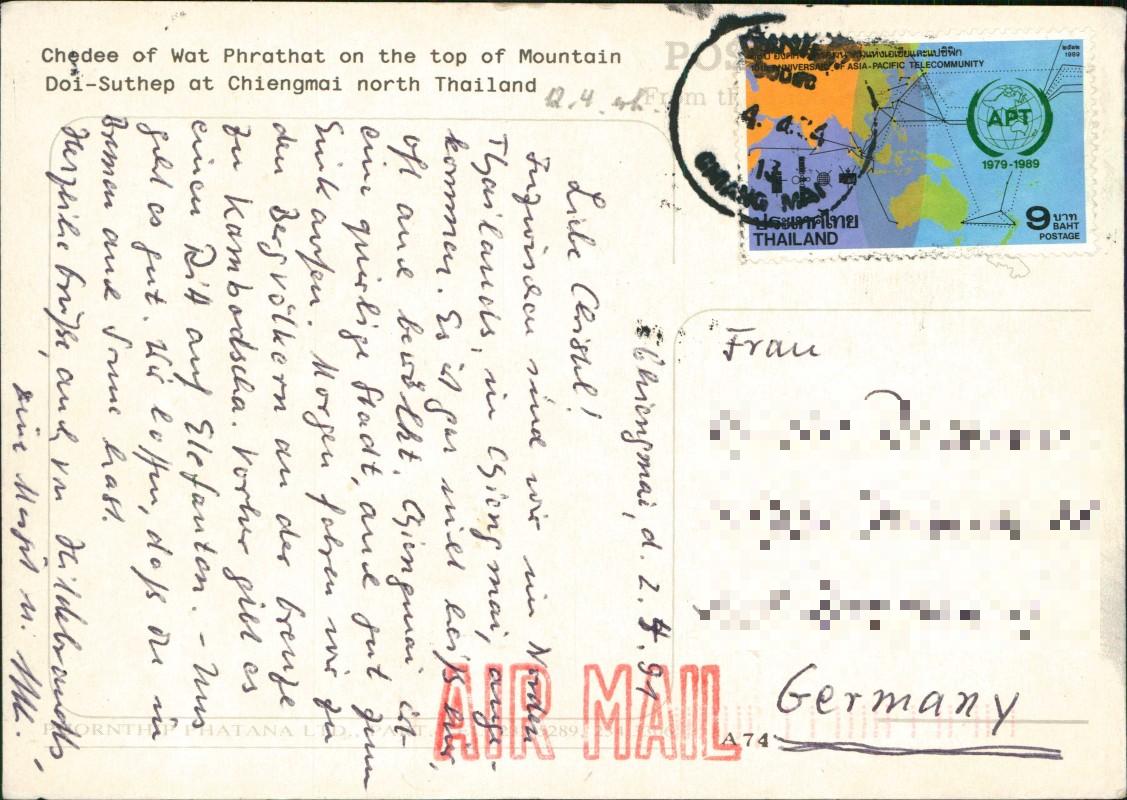 Chedee of Wat Phrathat on the top of Mountain
Doi-Suthep at Chiengmai north Thailand
12.4.
POS
From th
ประเทศไทย
THAILAND
ANNIVERSARY OF ASIA-PACIFIC TELECOMMUNITY
๒๕๓๒
1989
APT
1979-1989
9 บาท
BAHT
POSTAGE
CHIANG MAI
Chiengmai, d. 2.4.91
Liebe Christl!
Inzwischen sind wir im Norden
Thailands, in Chiengmai, ange-
kommen. Es ist gar nicht heiß hier,
oft auch bewölkt. Chiengmai ist
eine quirlige Stadt, auch gut zum
Einkaufen. Morgen fahren wir zu
den Bergvölkern an der Grenze
zu Kambodscha. Vorher gibt es
einen Ritt auf Elefanten. - Uns
geht es gut. Wir hoffen, daß Du in
Bremen auch Sonne hast.
Herzliche Grüße auch von Hildebrandts
Deine
Frau
Germany
AIR MAIL
A74
PHORNTHIP PHATANA LTD.,